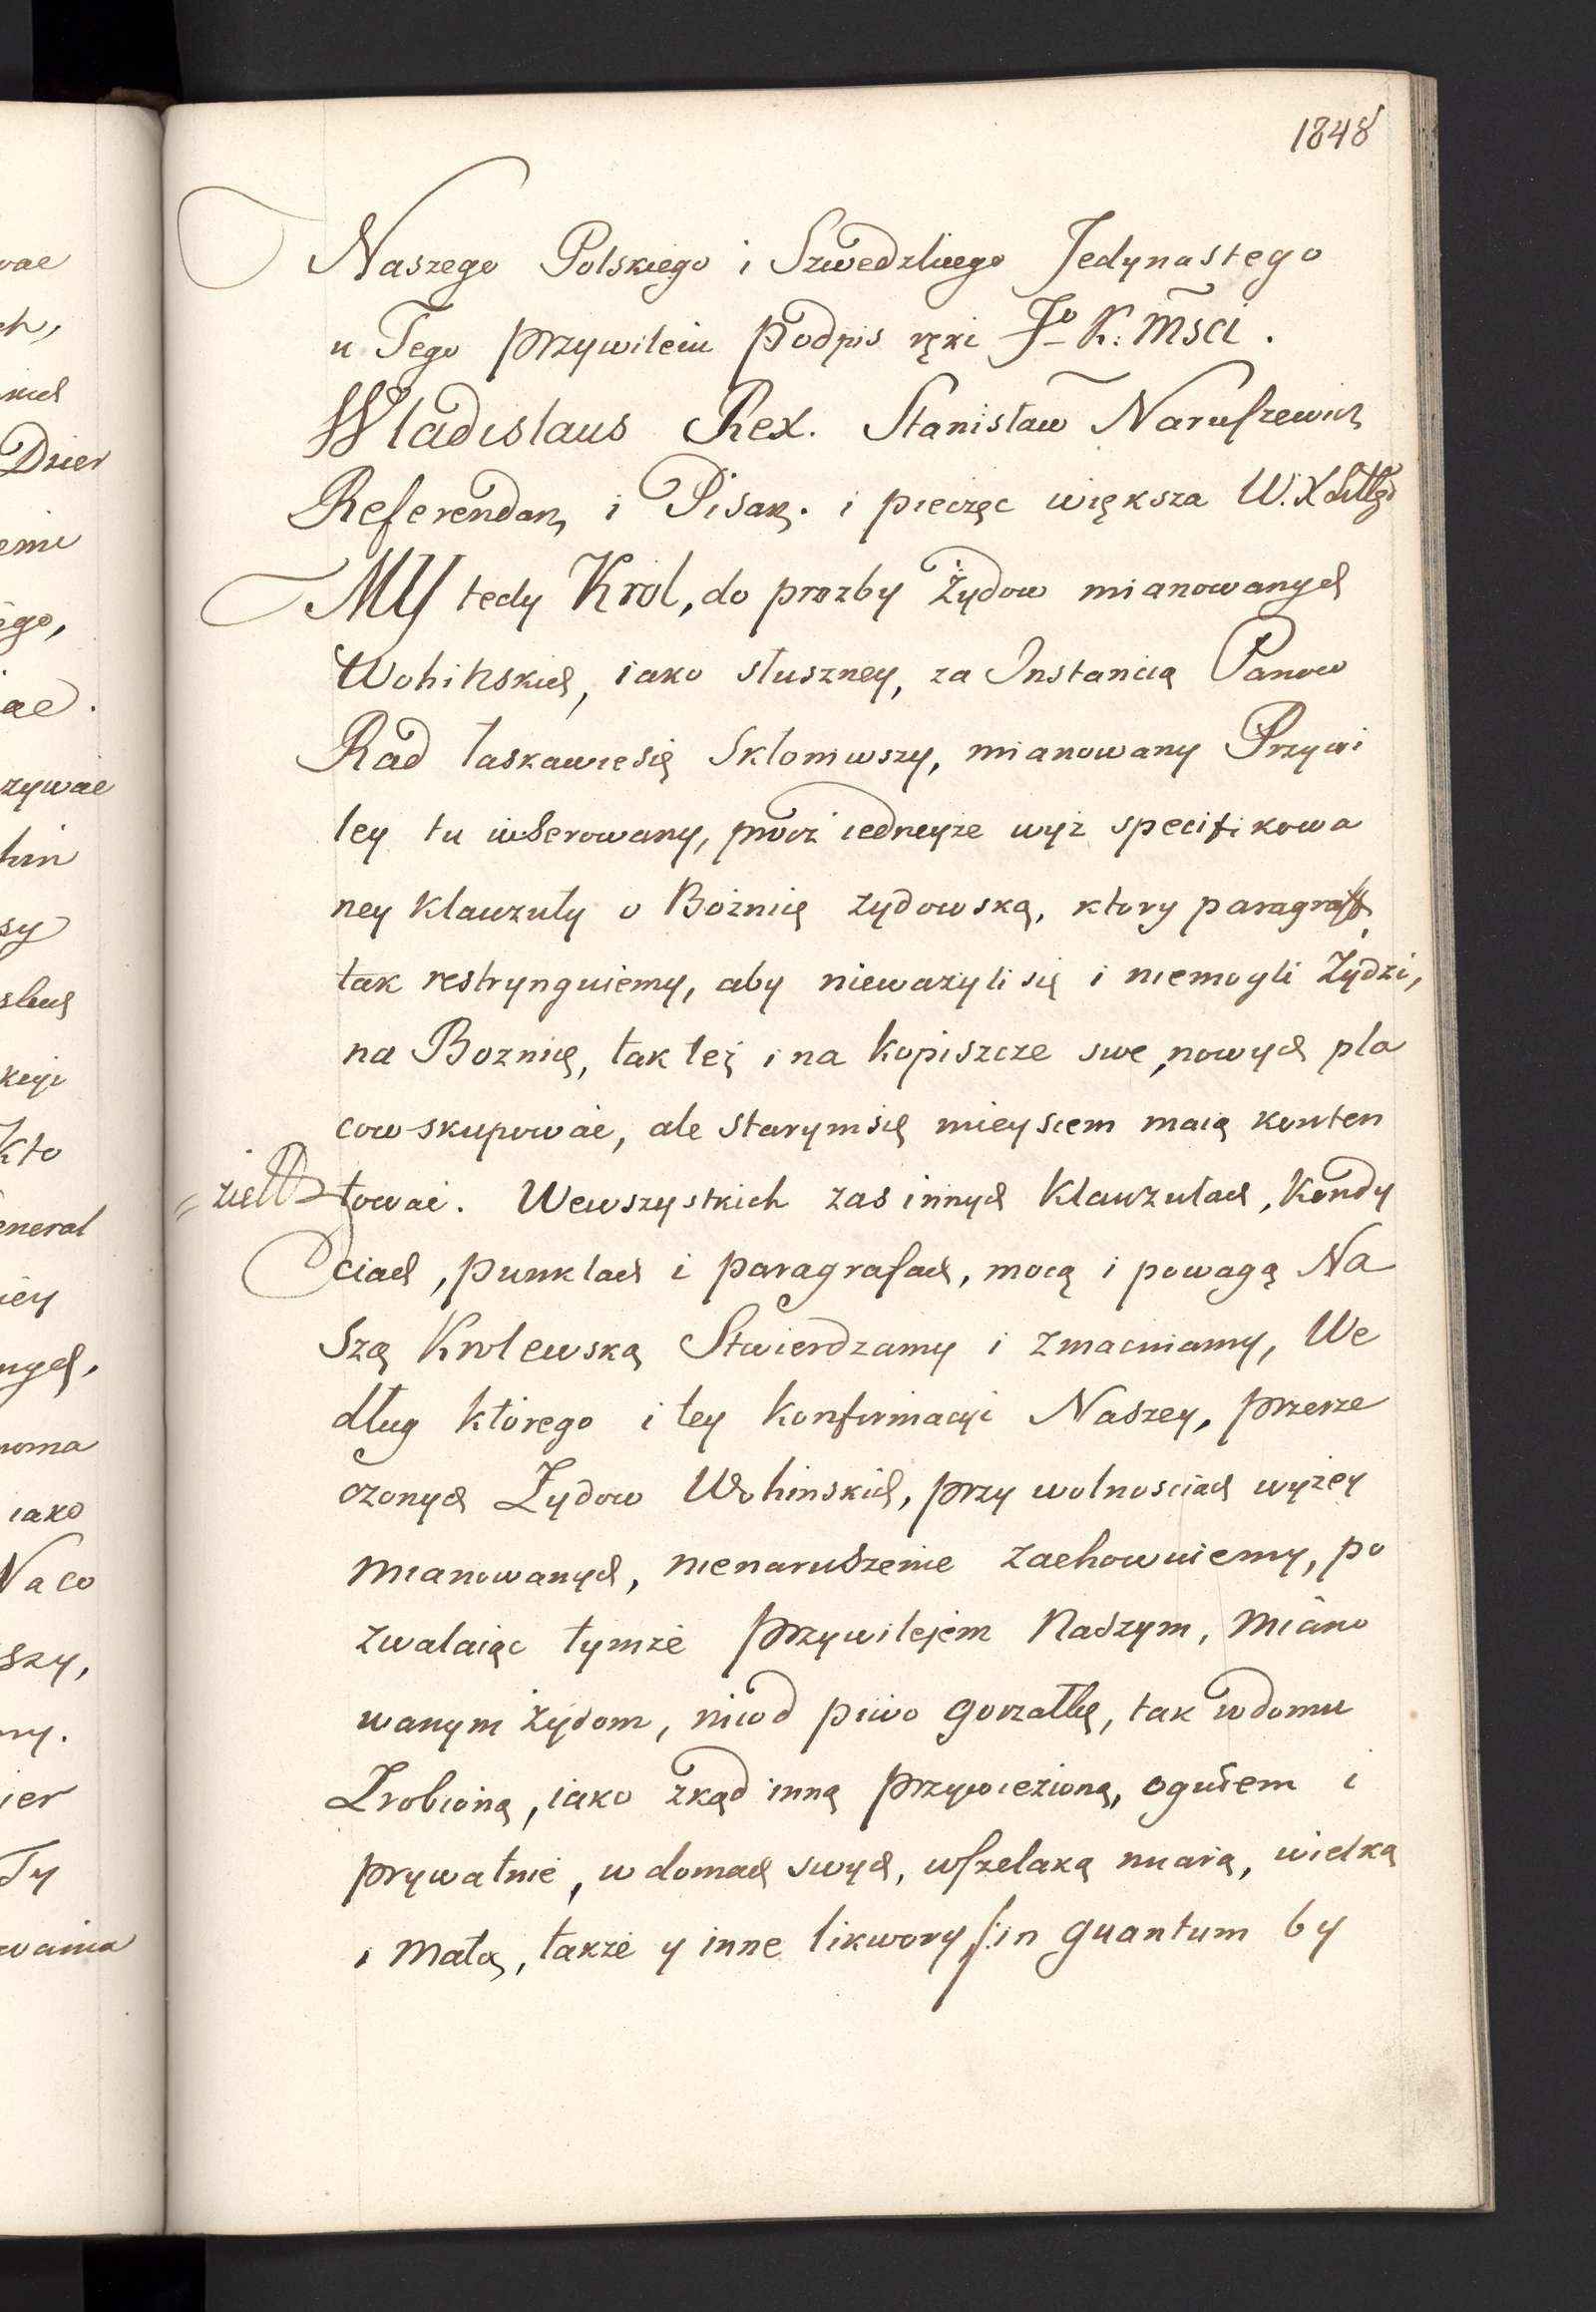 1848
Naszego Polskiego i Szwedzkiego Jedynastego
u Tego przywileiu podpis ręki Jo K: Mści.
Wladislaus Rex. Stanisław Naruszewicz
Referendarz i Pisarz. i pieczęc większa W. X
MY tedy Krol, do prozby Żydow mianowanych
Wohińskich, iako słuszney, za Instancią Panow
Rad łaskawie się Skłoniwszy, mianowany Przywi
ley tu inserowany, procz iedneyże wyż specifikowa
ney Klauzuły o Bożnicę żydowską, ktory paragraff,
tak restrynguiemy, aby nieważyli się i niemogli Żydzi,
na Boznicę, tak też i na kopiszcze swe, nowych pla
cow skupować, ale starym się mieyscem maią konten
tować. Wewszystkich zas innych Klauzułach, Kondy
ciach, punktach i paragrafach, mocą i powagą Na
Szą Krolewską Stwierdzamy i zmacniamy, We
dług którego i tey konfirmacyi Naszey, przerze
czonych Żydow Wohinskich, przy wolnosciach wyżey
mianowanych, nienaruszenie zachowuiemy, po
zwalaiąc tymże przywilejem Naszym, miano
wanym żydom, miod piwo gorzałkę, tak w domu
Zrobioną, iako zkąd inną przywiezioną, ogułem i
prywatnie, w domach swych, wszelaką miarą, wielką
i Małą, takze y inne likwory /: in quantum by
vae
ch,
kich
Dzier
emi
ego,
ae.
zywae
sy
Kto
eneral
iey
ngch,
noma
iako
Na co
szy,
ny.
ier
Ty
wania